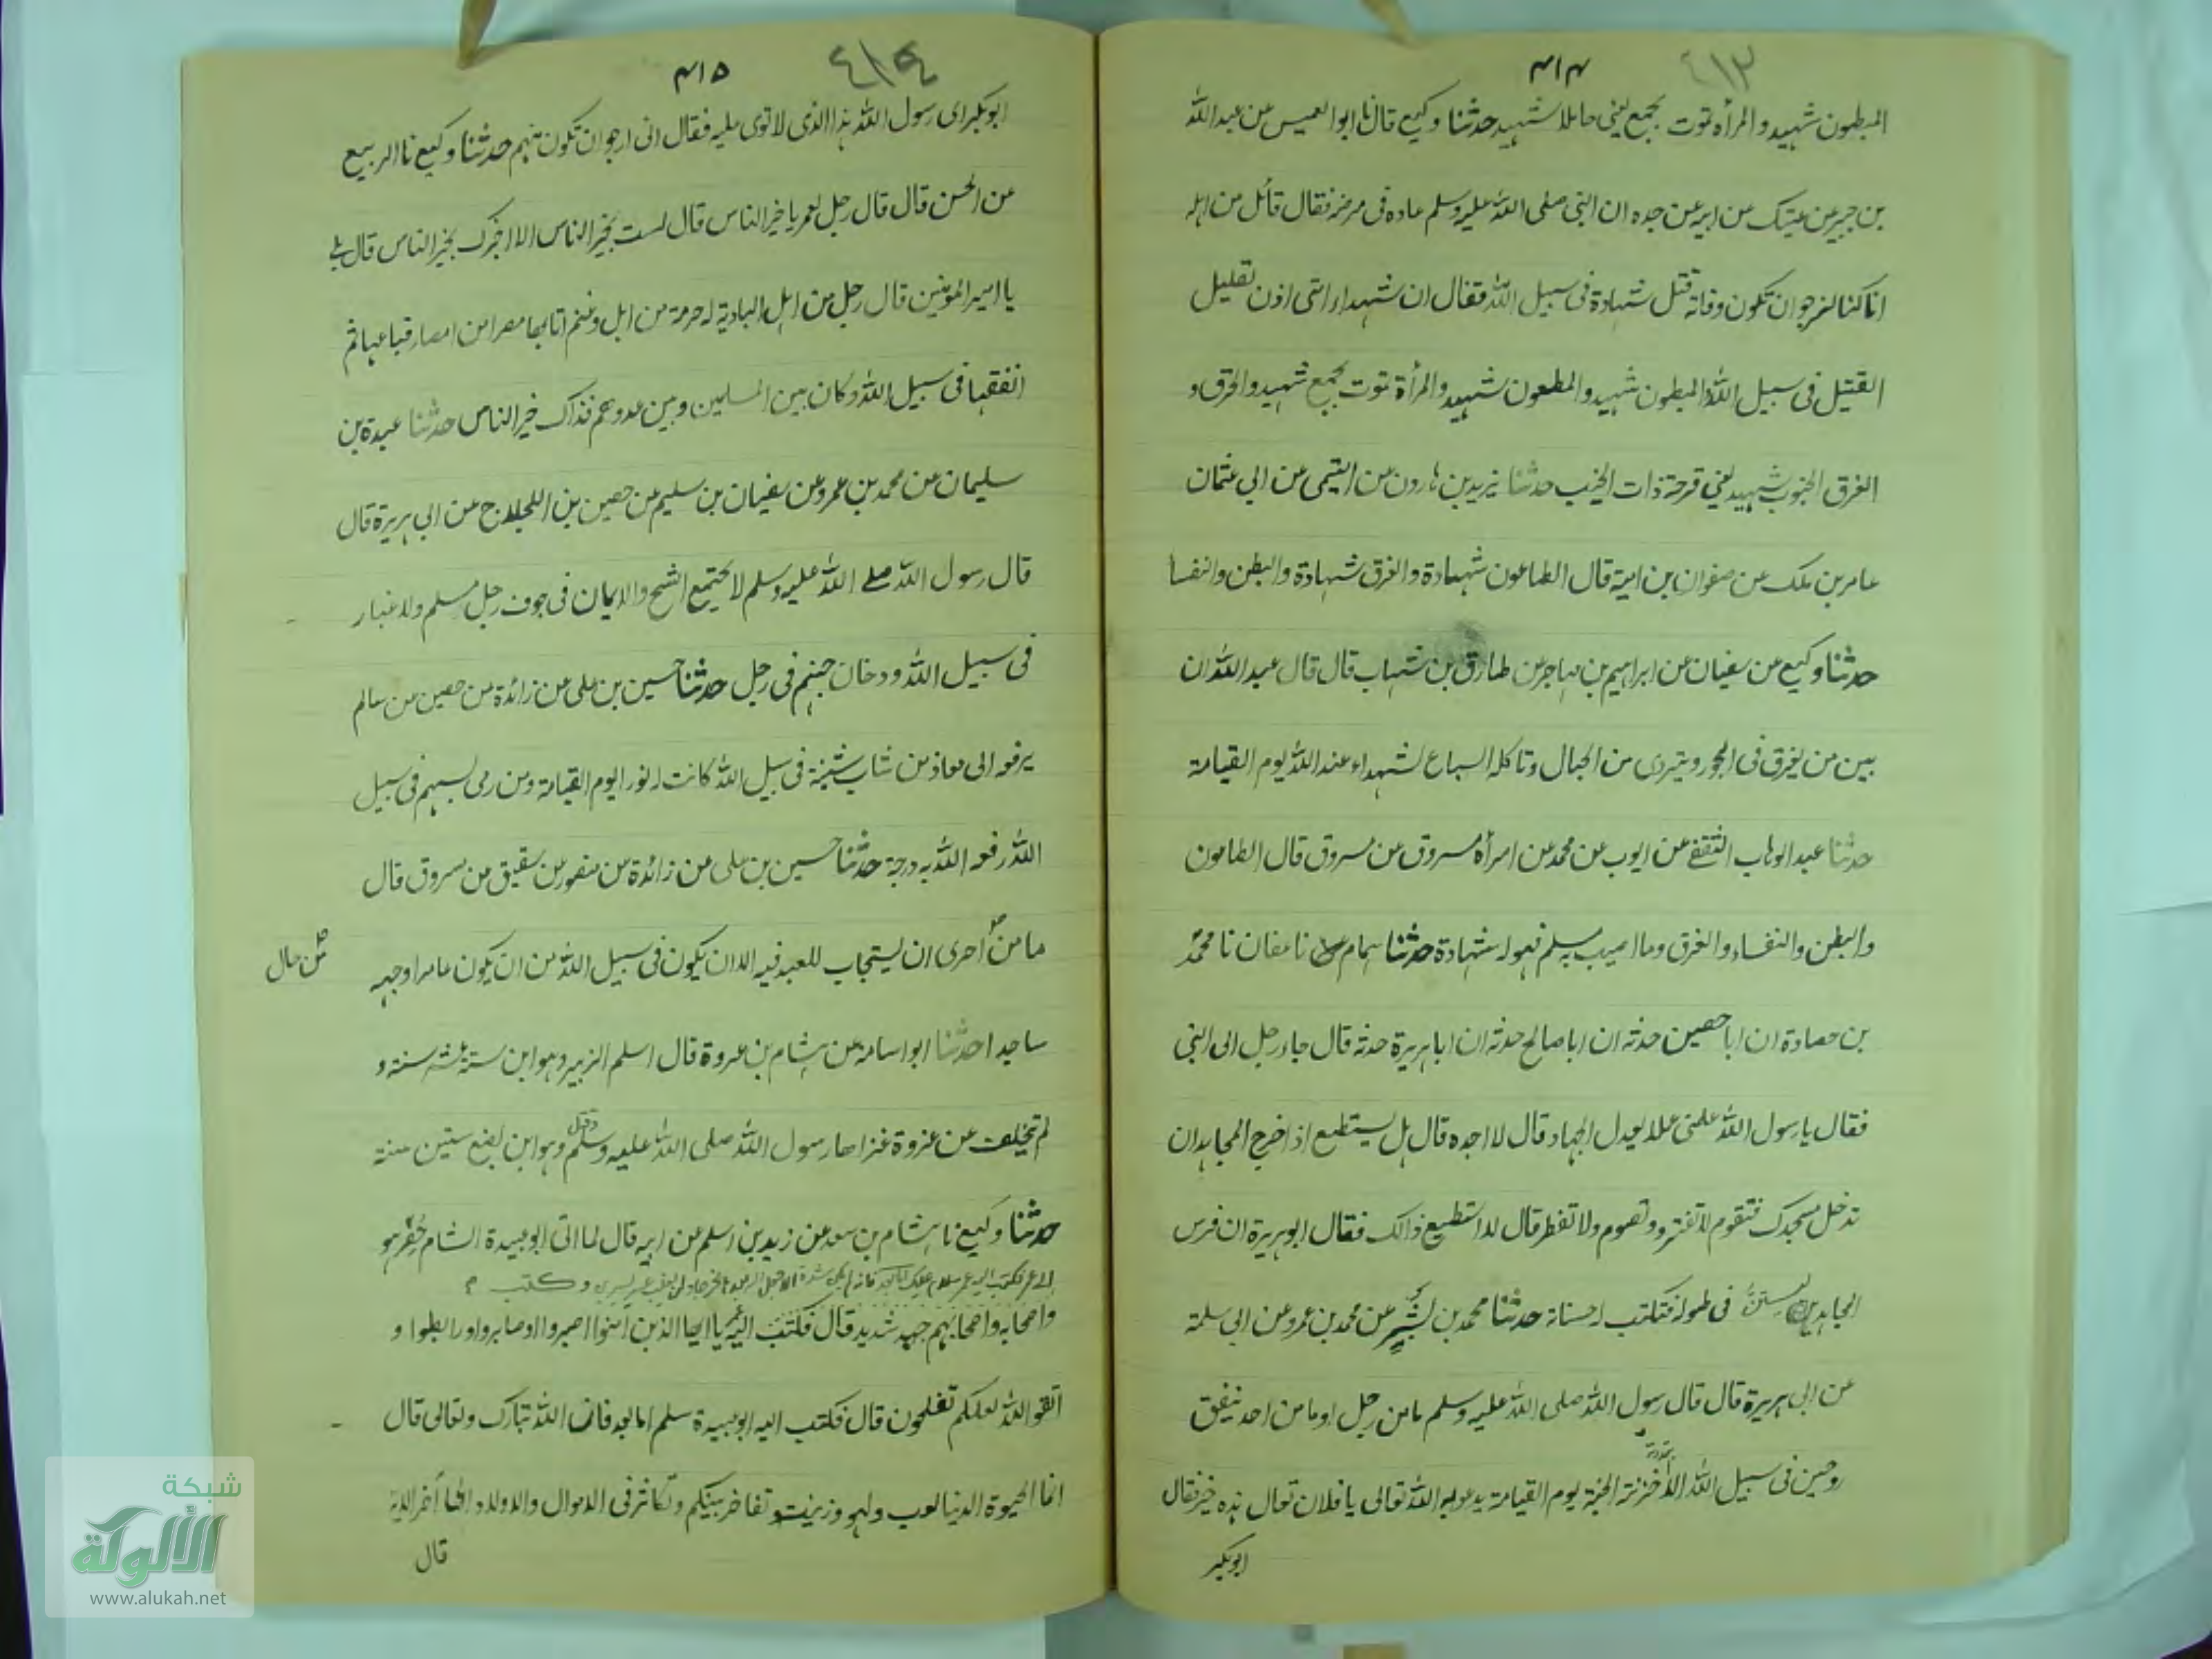 ٤١٣
٣١٤
المبطون شهيد والمرأه تموت بجمع يعني حاملا شهيد حدثنا وكيع قال نا ابو العميس عن عبد الله
بن جبير بن عتيك عن ابيه عن جده ان النبي صلى الله عليه وسلم عاده في مرضه فقال قائل من اهله
انا كنا لنرجو ان تكون وفاته قتل شهادة في سبيل الله فقال ان شهداء امتى اذن لقليل
القتيل في سبيل الله والمبطون شهيد والمطعون شهيد والمرأة تموت بجمع شهيد والحرق و
الغرق المجنوب شهيد يعني قرحة ذات الجنب حدثنا يزيد بن هارون عن التيمى عن ابي عثمان
عامر بن ملك عن صفوان بن امية قال الطاعون شهادة والغرق شهادة والبطن والنفسا
حدثنا وكيع عن سفيان عن ابراهيم بن مهاجر عن طارق بن شهاب قال قال عبد الله ان
بين من يغرق في البحور ويتردى من الجبال وتاكله السباع لشهداء عند الله يوم القيامة
حدثنا عبد الوهاب الثقفي عن ايوب عن محمد عن امرأة مسروق عن مسروق قال الطاعون
والبطن والنفساء والغرق وما اصيب به مسلم فهو له شهادة حدثنا همام نا عفان نا محمد
بن حصادة ان ابا حصين حدثه ان ابا صالح حدثه ان ابا هريرة حدثه قال جاء رجل الى النبي
فقال يا رسول الله علمنى عملا يعدل الجهاد قال لا اجده قال هل يستطيع اذا خرج المجاهد ان
تدخل مسجدك فتقوم لا تفتر وتصوم ولا تفطر قال لا استطيع ذالك فقال ابو هريرة ان فرس
المجاهد ليستن في طوله فتكتب له حسناته حدثنا محمد بن بشر عن محمد بن عمرو عن ابي سلمة
عن ابي هريرة قال قال رسول الله صلى الله عليه وسلم ما من رجل او ما من احد ينفق
زوجين في سبيل الله الا خزنة الجنة يوم القيامة يدعو به الله تعالى يا فلان تعال هذه خير فقال
ابو بكر
٤١٤
٣١٥
ابو بكر اى رسول الله هذا الذى لا توى عليه فقال انى ارجو ان تكون منهم حدثنا وكيع نا الربيع
عن الحسن قال قال رجل لعمر يا خير الناس قال لست بخير الناس الا اخبرك بخير الناس قال بلى
يا امير المؤمنين قال رجل من اهل البادية له صرمة من ابل وغنم اتا بها مصرا من امصار فباعها ثم
انفقها فى سبيل الله وكان بين المسلمين وبين عدوهم فذاك خير الناس حدثنا عبدة بن
سليمان عن محمد بن عمرو عن سفيان بن سليم عن حصين بن اللجلاج عن ابي هريرة قال
قال رسول الله صلى الله عليه وسلم لا يجتمع الشح والايمان فى جوف رجل مسلم ولا غبار
فى سبيل الله ودخان جهنم فى رجل حدثنا حسين بن على عن زائدة عن حصين عن سالم
يرفعه الى معاذ من شاب شيبة فى سبيل الله كانت له نورا يوم القيامة ومن رمى بسهم فى سبيل
الله رفعه الله به درجة حدثنا حسين بن على عن زائدة عن منصور عن شقيق عن مسروق قال
ما من أحرى ان يستجاب للعبد فيه الا ان يكون فى سبيل الله من ان يكون عامرا وجهه
من حال
ساجدا حدثنا ابو اسامة عن هشام بن عروة قال اسلم الزبير وهو ابن ستة عشر سنة و
لم يتخلف عن غزوة غزاها رسول الله صلى الله عليه وسلم وقتل وهو ابن بضع ستين سنة
حدثنا وكيع نا هشام بن سعد عن زيد بن اسلم عن ابيه قال لما اتى ابو عبيدة الشام حصر هو
وكتب
واصحابه واصحابهم جهد شديد قال فكتب اليه يا ايها الذين امنوا اصبروا وصابروا ورابطوا و
اتقوا الله لعلكم تفلحون قال فكتب اليه ابو عبيدة سلم اما بعد فان الله تبارك وتعالى قال
انما الحيوة الدنيا لعب ولهو وزينة وتفاخر بينكم وتكاثر فى الاموال والاولاد الى أخر الاية
قال
شبكة
الألوكة
www.alukah.net